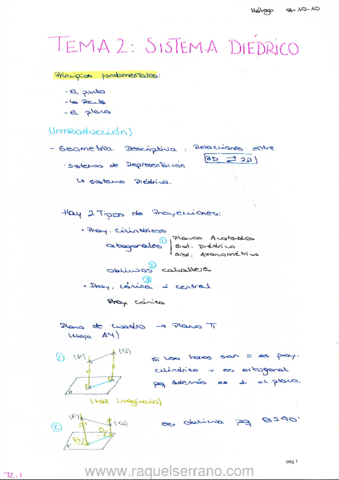 Málaga 8-10-20
TEMA 2: SISTEMA DIÉDRICO
Principios fundamentales:
- El punto
- la Recta
- El plano
(Introducción)
- Geometría Descriptiva: Relaciones entre
3D ⇄ 2D
· Sistemas de Representación
↳ Sistema Diédrico.
Hay 2 Tipos de Proyecciones:
• Proy. cilíndrica
ortogonales ① Planos Acotados
Sist. Diédrico
Sist. Axonométrico
② oblicuas caballera
③
• Proy. cónica = central
Proy cónica
Plano de cuadro → Plano π
(Hoja A4)
① (P) (Q)
Si los haces son = es proy.
cilíndrica y es ortogonal
pq además es ⊥ al plano.
(haz imaginario)
② (P) (Q)
es oblicua pq
pag. 1
www.raquelserrano.com
T2.1